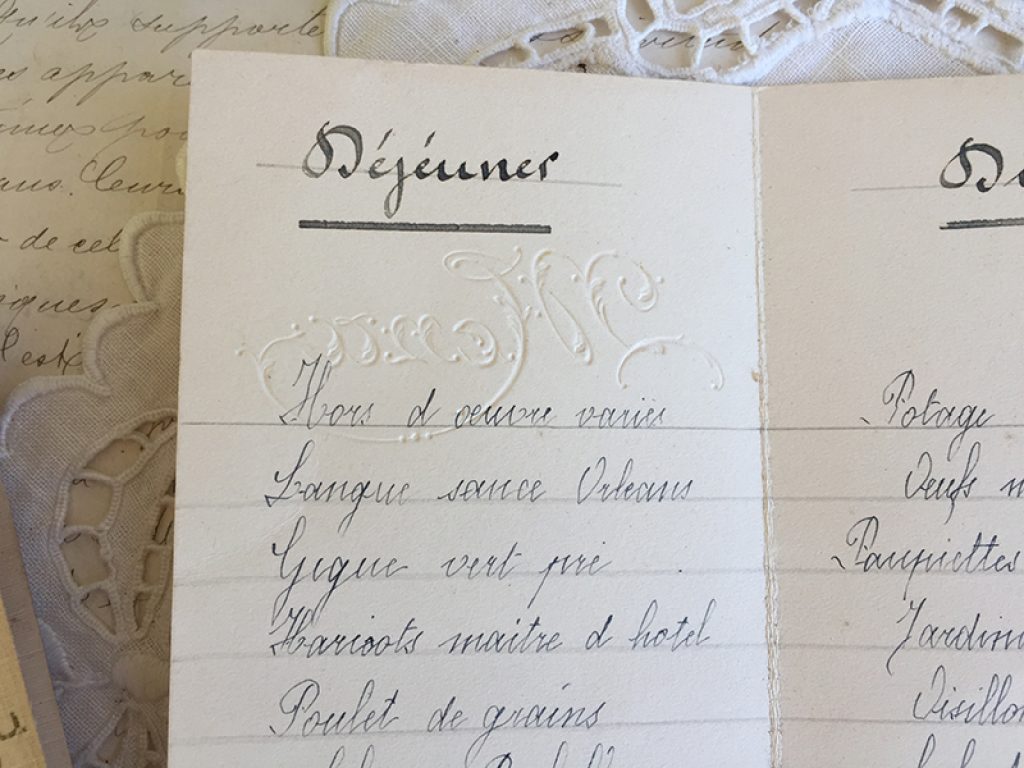 qu'ils supporte
es appar
ans leurs
de cel
iques
l'est
Déjéuner
Menu
Hors d oeuvre variés
Langue sauce Orleans
Gigue vert pré
Haricots maitre d hotel
Poulet de grains
Potage
Oeufs
Paupiettes
Jardin
Oisillon